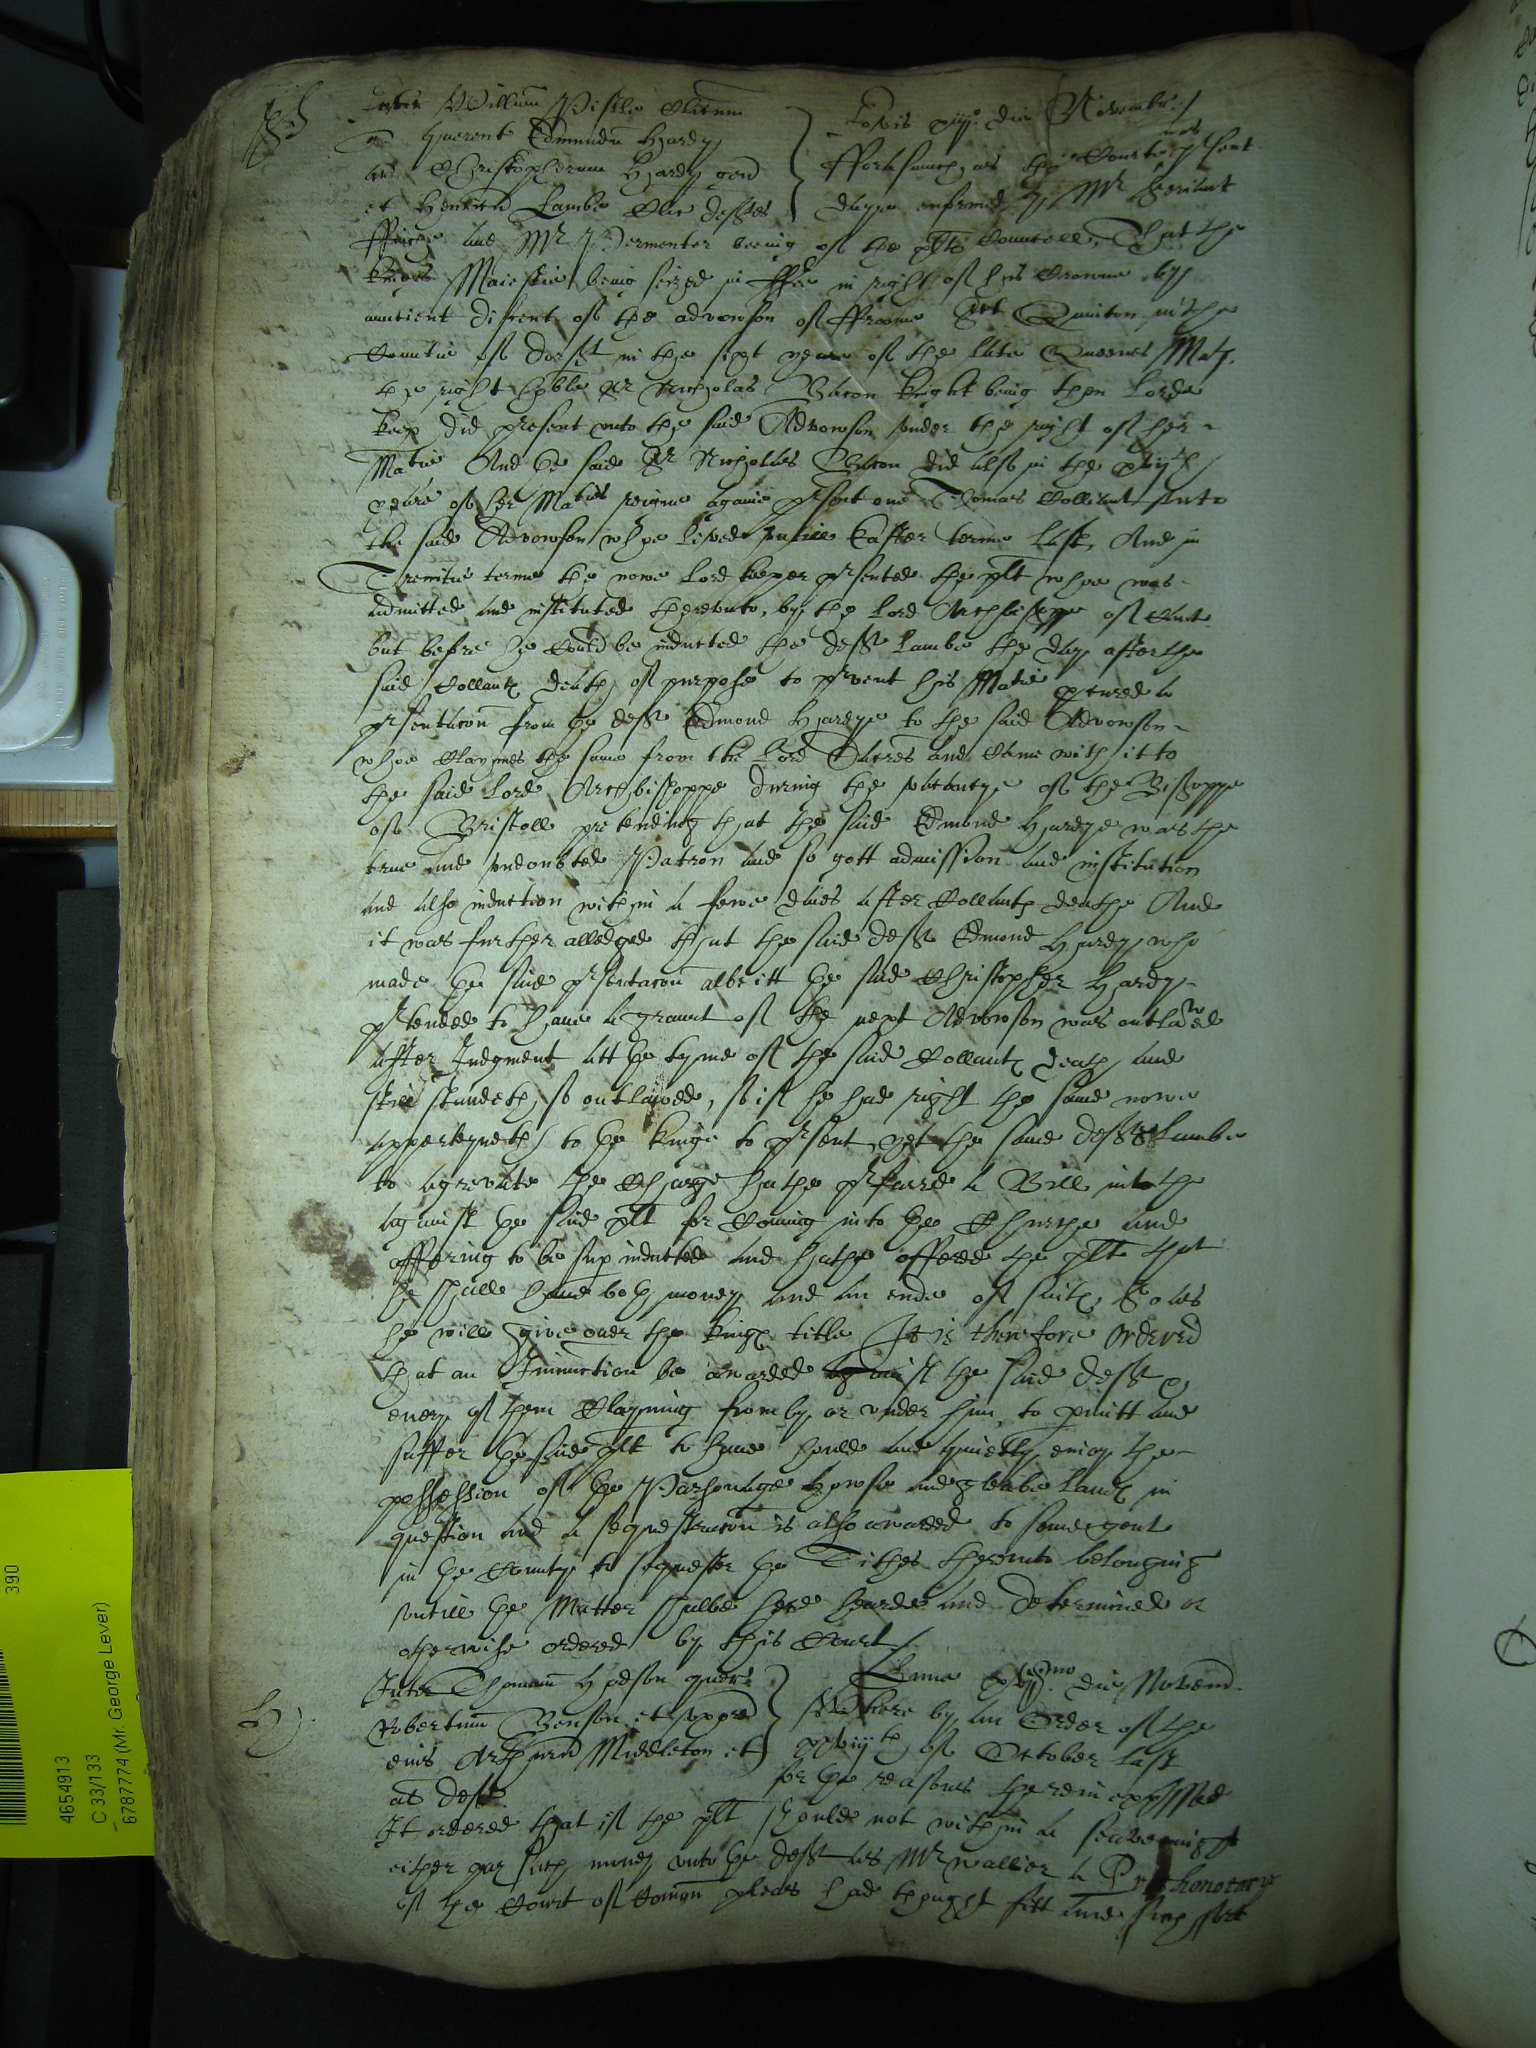 Inter Willum Pistle Clicum
quærent Edmundū Hardy
Christopherum Hardy gen̄
et Henricū Lambe Cler̄ defts
Jovis xiijᵒ die Novembr̄
fforasmuch as the Courte was pr̄sent
daye enformed by Mʳ Seriant
and Mʳ Permenter beeing of the plts Councell, That the
Kings Maiestie being seized in ffee in right of his Crowne by
auncient discent of the advowson of ffroome Quinton in the
Countie of Dorsᵗ in the sixt yeare of the late Queenes Matᵉ.
the right hoble Sr Nicholas Bacon knight being then Lorde
keep did present unto the said Advowson under the right of her
Matie And the said Sr Nicholas Bacon did also in the xviijth
yeare of her Maties reigne againe pr̄sent one Thomas Collant unto
the said Advowson whoe lived untill Easter terme last, And in
Trenitie terme the nowe Lord keeper pr̄sented the plt whoe was
admitted and instituted thereunto, by the Lord Archbishoppe of Cant.
but before he could be inducted the deft Lambe the day after the
said Collants death of purpose to pr̄vent his Matie p̱cured a
pr̄sentacōn from the deft Edmond Hardye to the said Advowson
whoe claymes the same from the Lord Dacres and came with it to
the said Lord Archbishoppe during the vacancye of the Bishoppr̄
of Bristoll pretending that the said Edmond Hardye was the
true and undoubted Patron and so gott admission and institution
and also induction within a fewe daies after Collants deathe And
it was further alledged that the said deft Edmond Hardy who
made the said pr̄sentacōn albeitt the said Christopher Hardy
pr̄tended to have a graunt of the next Advowson was outlawed
after Judgment att the tyme of the said Collants death and
still standeth so outlawed, so if he had right the same nowe
apperteyneth to the kinge to pr̄sent, yet the same deft Lambe
to agravate the Charge hathe pr̄ferrd a Bill into the
against the said plt for coming into the Churche and
offering to be sup inducted and hathe offered the plt that
he shall have both money and an ende of suits, so as
he will give over the kings title It is therefore ordered
that an Iniunction be awarded against the said deft &
every of them Clayming from by or under him, to p̱mitt and
suffer the said plt to have hould and quietly enioy the
possession of the Parsonage howse and gleabe lands in
question and a sequestracōn is also awarded to some gent
in the County to sequester the Tithes thereunto belonging
untill the Matter shalbe here heard and determined or
otherwise ordered by this Court
Inter Thomam Hodson quer
Robertum Benson et uxorē
eius Arthurū Middleton et
al defts
Lune die Novemb.
Where by an Order of the
xxviijth of October last
for the reasons therein exp̱ssed
It ordered that if the plt should not within a seavenight
either pay such money unto the deft as Mʳ Waller a Prothonotary
of the Court of Comōn pleas had thought fitt and such
390
4654913
C 33/133
6787774 (Mr. George Lever)